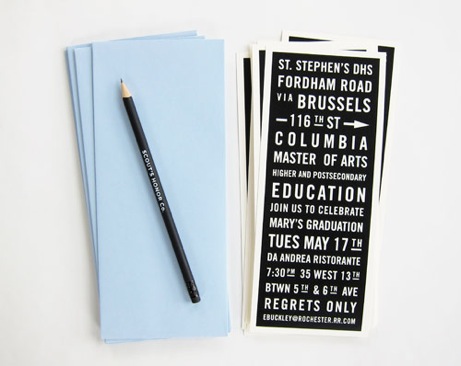 SCOUT'S HONOR Co.
ST. STEPHEN'S DHS
FORDHAM ROAD
VIA BRUSSELS
116TH ST
COLUMBIA
MASTER OF ARTS
HIGHER AND POSTSECONDARY
EDUCATION
JOIN US TO CELEBRATE
MARY'S GRADUATION
TUES MAY 17TH
DA ANDREA RISTORANTE
7:30PM 35 WEST 13TH
BTWN 5TH & 6TH AVE
REGRETS ONLY
EBUCKLEY@ROCHESTER.RR.COM